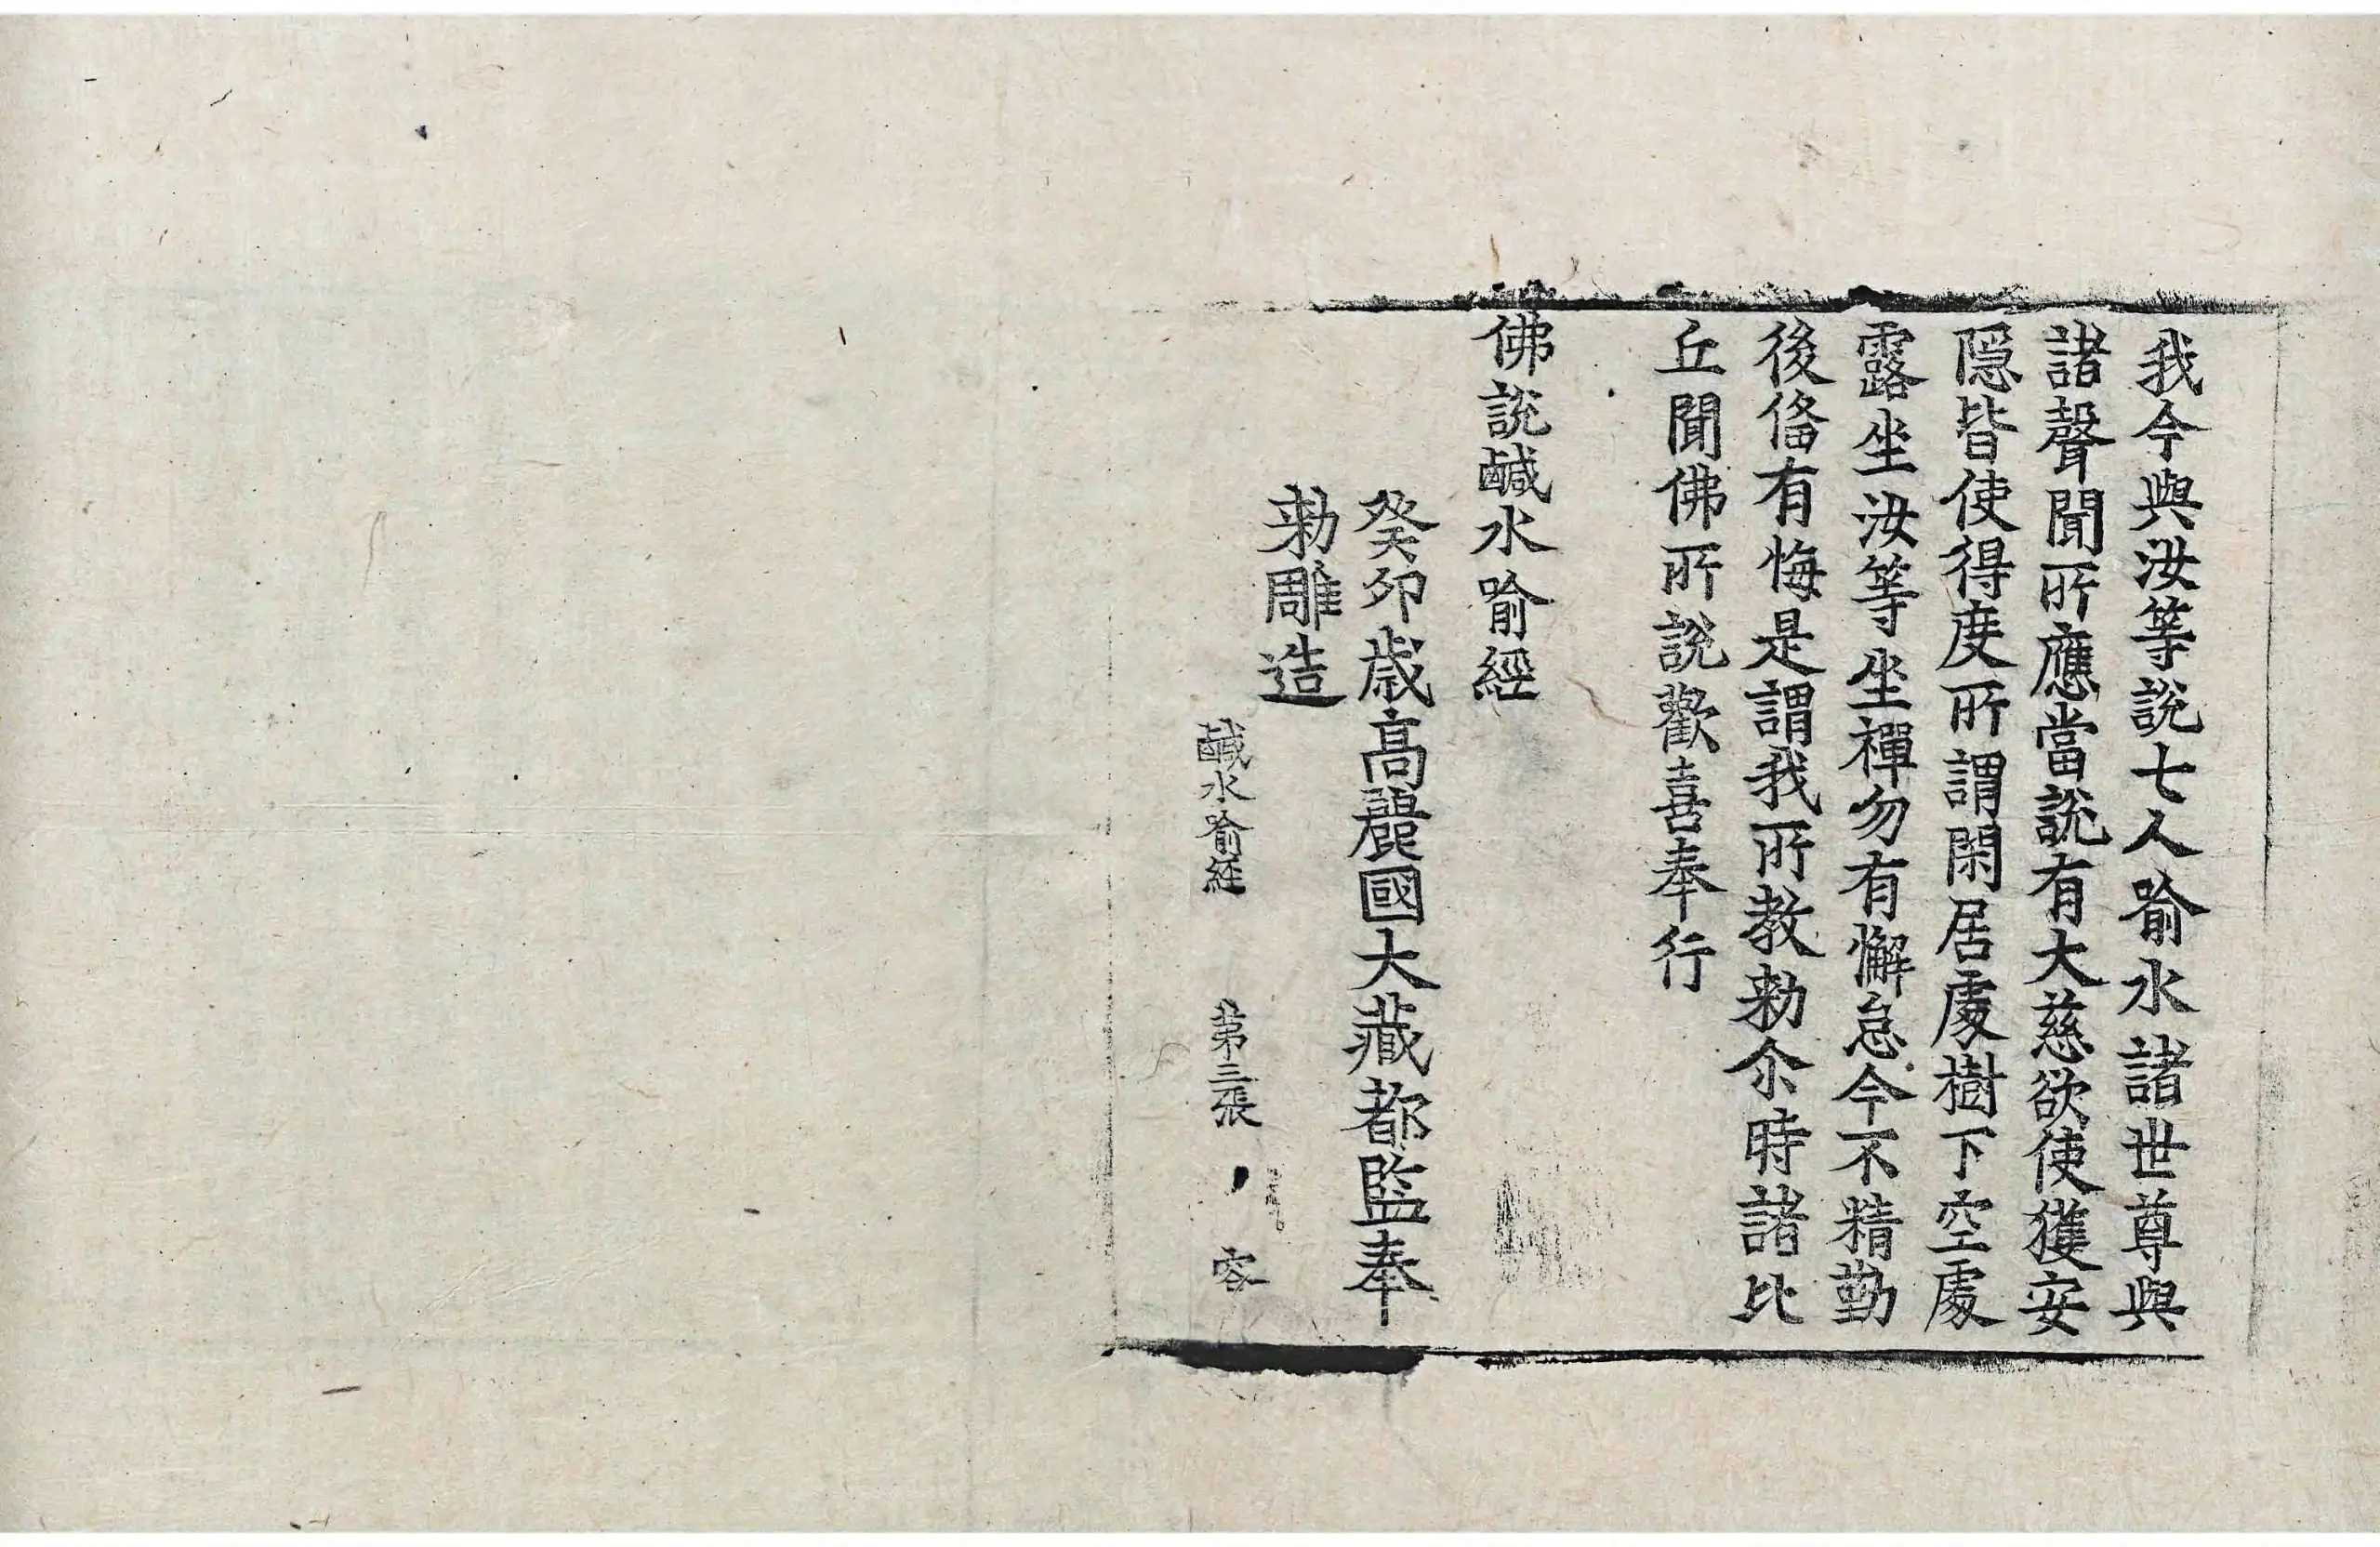 我今與汝等說七人喻水諸世尊與
諸聲聞所應當說有大慈欲使獲安
隠皆使得度所謂閑居處樹下空處
露坐汝等坐禪勿有懈怠今不精勤
後俻有悔是謂我所教勑尒時諸比
丘聞佛所說歡喜奉行
佛說鹹水喻經
癸卯歲高麗國大藏都監奉
勑雕造
鹹水喻經 第三張 容